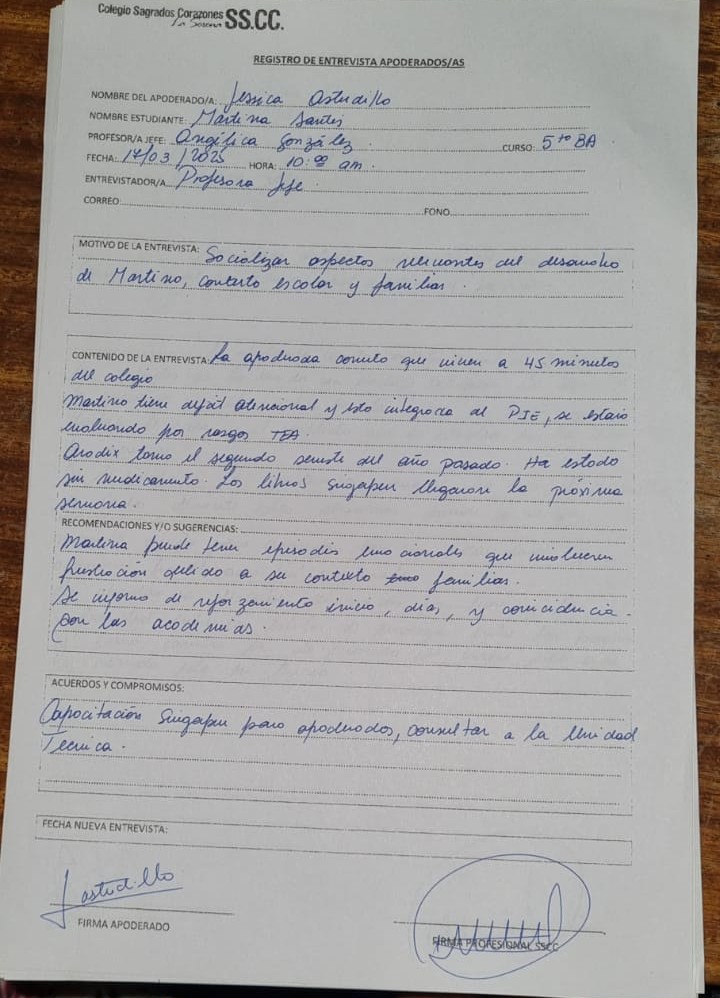 Colegio Sagrados Corazones SS.CC.
La Serena
REGISTRO DE ENTREVISTA APODERADOS/AS
NOMBRE DEL APODERADO/A: Jessica Astudillo
NOMBRE ESTUDIANTE: Martina Santis
PROFESOR/A JEFE: Angélica González CURSO: 5to BA
FECHA: 14/03/2025 HORA: 10:00 am.
ENTREVISTADOR/A Profesora Jefe.
CORREO FONO
MOTIVO DE LA ENTREVISTA: Socializar aspectos relevantes del desarrollo
de Martina, contexto escolar y familiar.
CONTENIDO DE LA ENTREVISTA: La apoderada comenta que viven a 45 minutos
del colegio
Martina tiene déficit atencional y esto integrada al PIE, se estaría
evaluando por rasgos TEA.
Aradix tomo el segundo semestre del año pasado. Ha estado
sin medicamento. Los libros Singapur llegaron la próxima
semana.
RECOMENDACIONES Y/O SUGERENCIAS:
Martina puede tener episodios emocionales que involucren
frustración debido a su contexto familiar.
Se informo de reforzamiento inicio, días, y coincidencia
con las academias.
ACUERDOS Y COMPROMISOS:
Capacitación Singapur para apoderados, consultar a la Unidad
Técnica.
FECHA NUEVA ENTREVISTA:
Jastudillo
FIRMA APODERADO
FIRMA PROFESIONAL SSCC